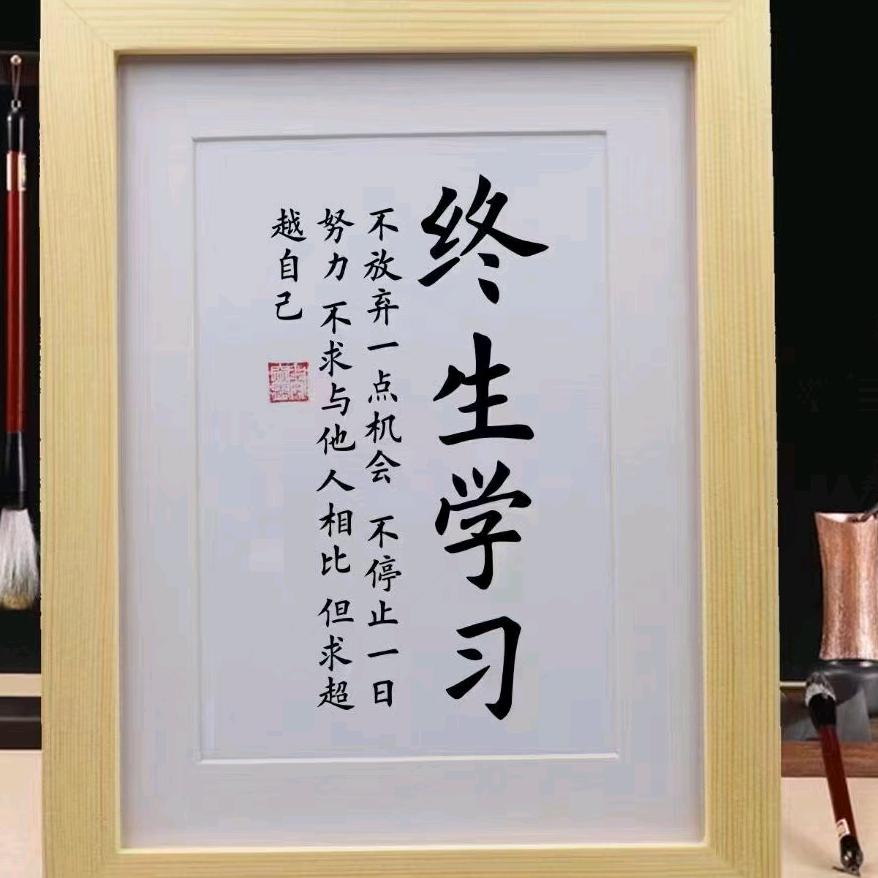 终生学习
不放弃一点机会 不停止一日
努力 不求与他人相比 但求超
越自己